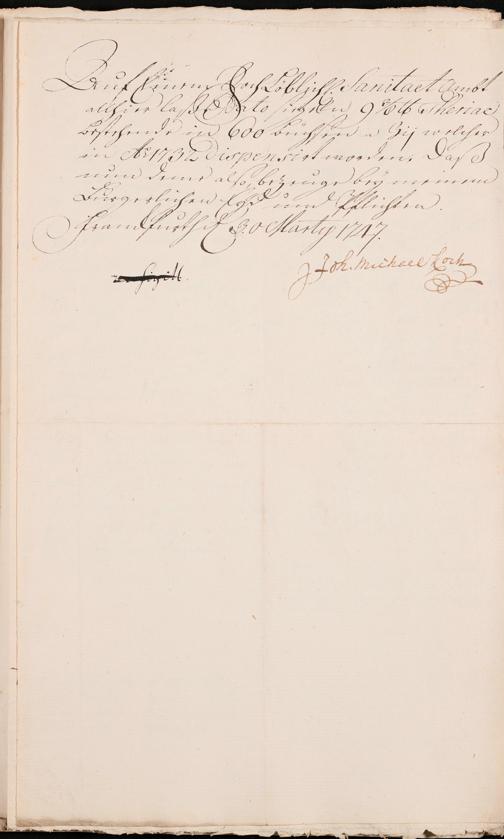 Auf Einem HochLöblich. Sanitaet Ambt
allhier laß Dato siegeln 9 ℔ Theriac
bestehende in 600 büchsen a ʒij welcher
in Aº 1732 Dispensirt worden. Daß
nun deme also, bezeuge bey meinem
Bürgerlichen Eyd und Pflichten.
Franckfurth d. 30 Marty 1747.
sigill. Joh. Michael Koch